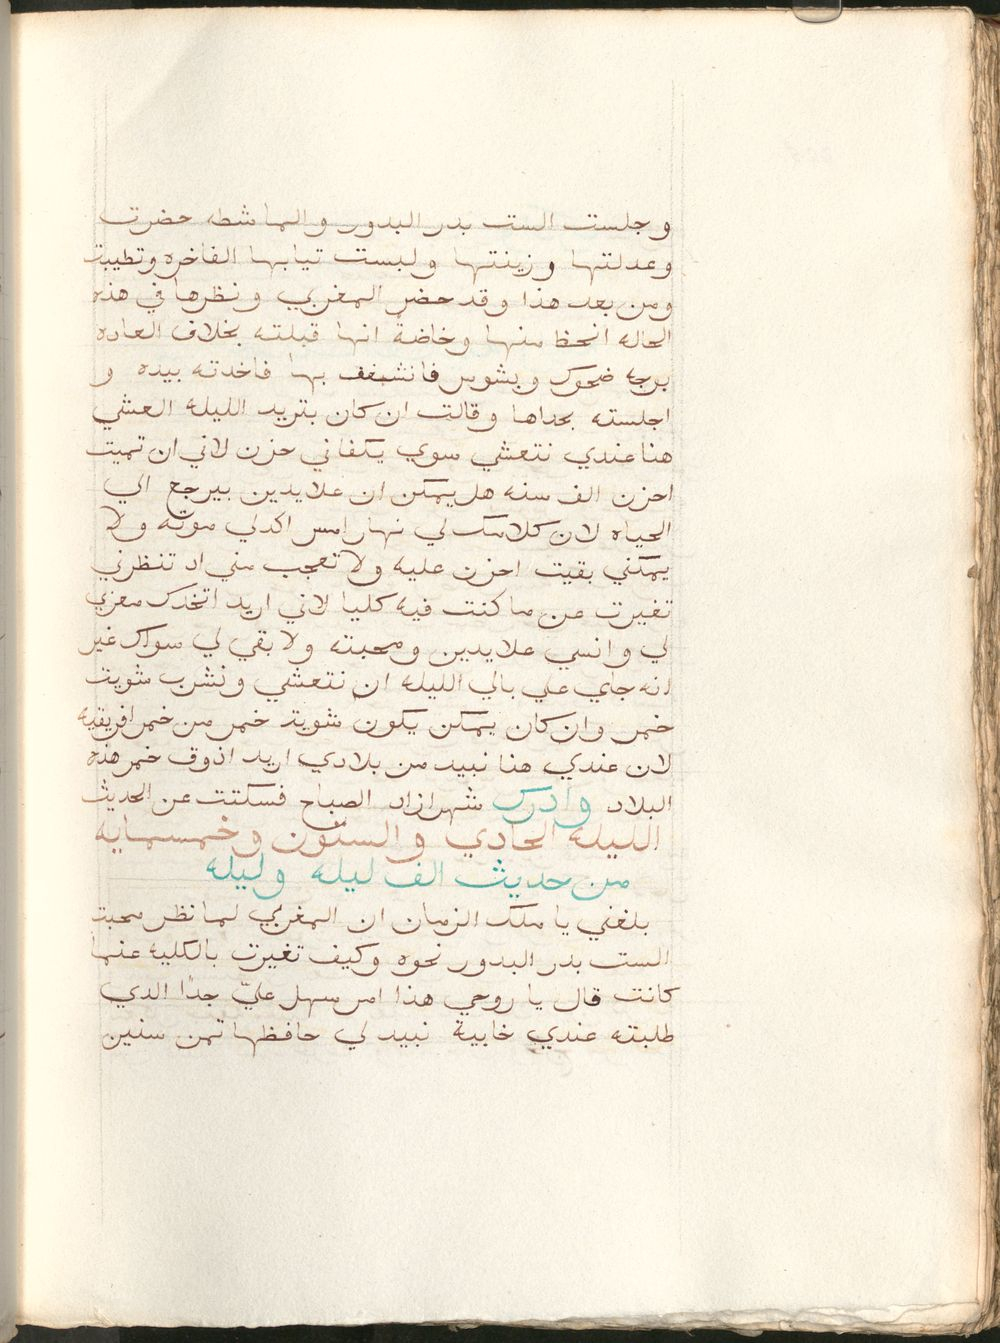 وجلست الست بدر البدور والماشطه حضرت
وعدلتها وزينتها ولبست تيابها الفاخره وتطيبت
ومن بعد هذا وقد حضر المغربي ونظرها في هذه
الحاله انحظ منها وخاصةً انها قبلته بخلاف العاده
بوجه ضحوك وبشوس فانشغف بها فاخدته بيده و
اجلسته بحداها وقالت ان كان بتريد الليله العشي
هنا عندي نتعشي سوي يكفاني حزن لاني ان تميت
احزن الف سنه هل يمكن ان علايدين بيرجع الي
الحياه لان كلامك لي نهار امس اكدلي موته ولا
يمكني بقيت احزن عليه ولا تعجب مني اد تنظرني
تغيرت عن ما كنت فيه كليا لاني اريد اتخدك معزي
لي وانسي علايدين ومحبته ولا بقي لي سواك غير
انه جاي علي بالي الليله ان نتعشي ونشرب شويت
خمر وان كان يمكن يكون شوية خمر من خمر افريقيه
لان عندي هنا نبيد من بلادي اريد ادوق خمر هذه
البلاد وادرك شهرازاد الصباح فسكتت عن الحديث
الليله الحادي والستون وخمسمايه
من حديث الف ليله وليله
بلغني يا ملك الزمان ان المغربي لما نظر محبت
الست بدر البدور نحوه وكيف تغيرت بالكليه عنما
كانت قال يا روحي هذا امر سهل عليّ جدًا الدي
طلبته عندي خابية نبيد لي حافظها تمن سنين